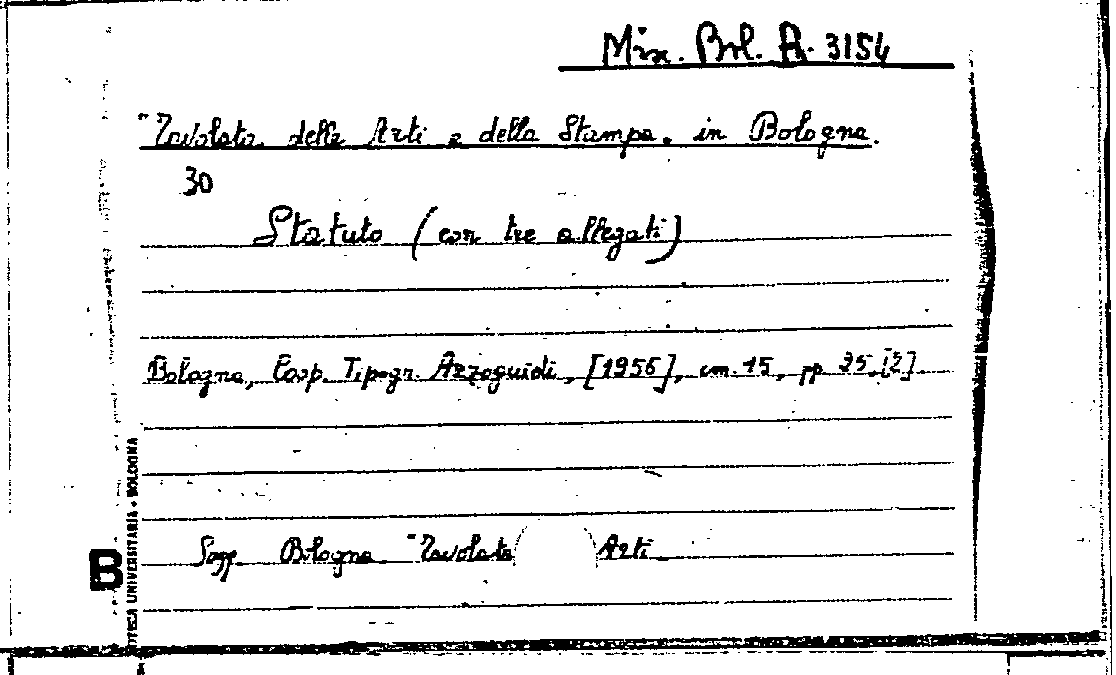 Misc. Bol. A. 3154
"Tavolata delle Arti e della Stampa. in Bologna.
30
Statuto (con tre allegati)
Bologna, Coop. Tipogr. Azzoguidi, [1956], cm. 15, pp. 25,[2].
Sogg. Bologna "Tavolata ( ) Arti
B
BIBLIOTECA UNIVERSITARIA • BOLOGNA